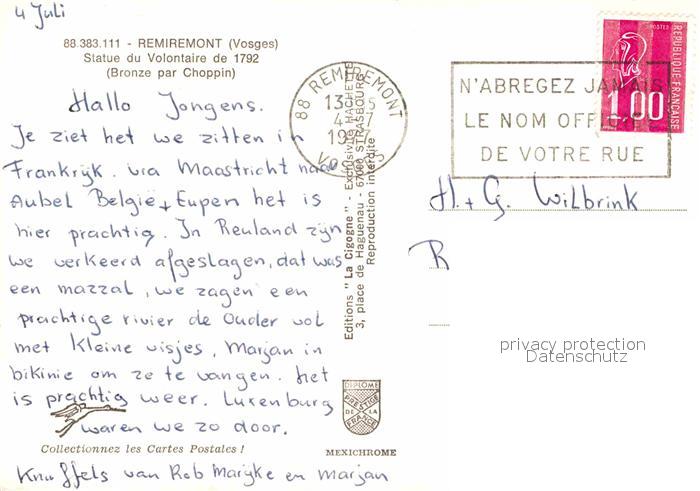 4 Juli
88.383.111 - REMIREMONT (Vosges)
Statue du Volontaire de 1792
(Bronze par Choppin)
Hallo Jongens.
Je ziet het we zitten in
Frankrijk. via Maastricht naar
Aubel Belgie + Eupen het is
hier prachtig. In Reuland zijn
we verkeerd afgeslagen, dat was
een mazzal, we zagen een
prachtige rivier de Ouder vol
met kleine visjes, Marjan in
bikinie om ze te vangen. het
is prachtig weer. Luxenburg
waren we zo door.
Collectionnez les Cartes Postales !
Knuffels van Rob Marijke en Marjan
Editions "La Cigogne" - Exclusivité HACHETTE
3, place de Haguenau - 67000 STRASBOURG
Reproduction interdite
DIPLOME
PRESTIGE
DE LA
FRANCE
MEXICHROME
88 REMIREMONT
VOSGES
N'ABREGEZ JAMAIS
LE NOM OFFICIEL
DE VOTRE RUE
POSTES
REPUBLIQUE FRANÇAISE
1,00
H. + G. Wilbrink
R
privacy protection
Datenschutz